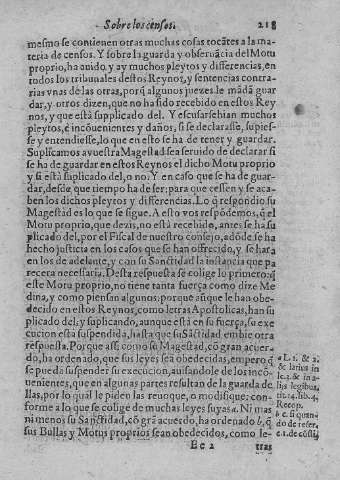 Sobre los censos. 218
mesmo se contienen otras muchas cosas tocãtes a la ma-
teria de censos. Y sobre la guarda y obseruãcia del Motu
proprio, ha auido, y ay muchos pleytos y differencias, en
todos los tribunales destos Reynos, y sentencias contra-
rias vnas de las otras, porq̃ algunos juezes le mãdã guar
dar, y otros dizen, que no ha sido recebido en estos Rey
nos, y que està supplicado del. Y escusarsehian muchos
pleytos, è incõuenientes y daños, si se declarasse, supies-
se y entendiesse, lo que en esto se ha de tener y guardar.
Suplicamos a vuestra Magestad sea seruido de declarar si
se ha de guardar en estos Reynos el dicho Motu proprio
y si està suplicado del, o no. Y en caso que se ha de guar-
dar, desde que tiempo ha de ser: para que cessen y se aca-
ben los dichos pleytos y differencias. Lo q̃ respondio su
Magestad es lo que se sigue. A esto vos respõdemos, q̃ el
Motu proprio, que dezis, no està recebido, antes se ha su
plicado del, por el Fiscal de nuestro consejo, adõde se ha
hecho justicia en los casos que se han offrecido, y se hara
en los de adelante, y con su Sanctidad la instancia que pa
recera necessaria. Desta respuesta se colige lo primero: q̃
este Motu proprio, no tiene tanta fuerça como dize Me
dina, y como piensan algunos: porque aũque le han obe-
decido en estos Reynos, como letras Apostolicas, han su
plicado del: y suplicando, aunque està en su fuerça, su exe
cucion està suspendida, hasta que su Sãctidad embie otra
respuesta. Porque assi, como su Magestad, cõ gran acuer-
do, ha ordenado, que sus leyes seã obedecidas, empero q̃
se pueda suspender su execucion, auisandole de los incõ-
uenientes, que en algunas partes resultan de la guarda de
llas, por lo qual le piden las reuoque, o modifique: con-
forme a lo que se colige de muchas leyes suyas a. Ni mas
ni menos su Sanctidad, cõ grã acuerdo, ha ordenado b, q̃
sus Bullas y Motus proprios sean obedecidos, como le-
a L. 1. & 2.
& latius in
le. 2. & in a-
lijs legibus,
tit. 14. lib. 4.
Recop.
b c. si quan-
do de rescr.
Ee 2 tras